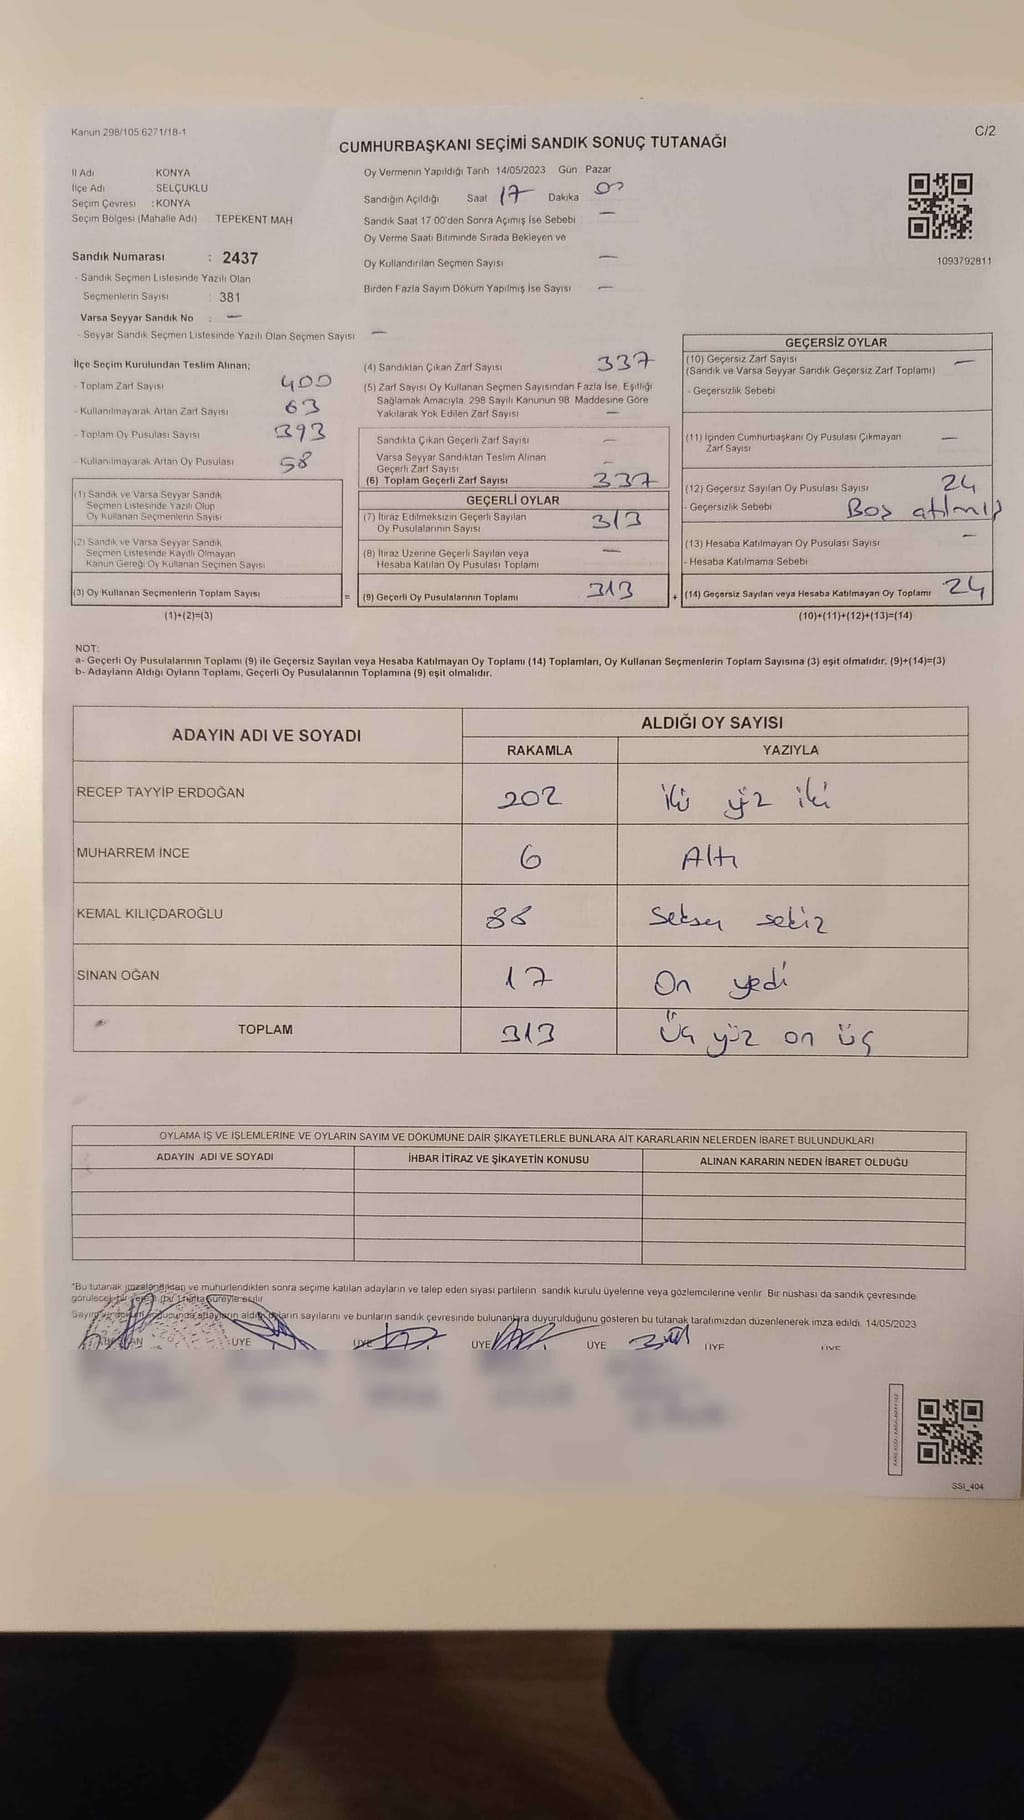 Kanun 298/105 6271/18-1
C/2
CUMHURBAŞKANI SEÇİMİ SANDIK SONUÇ TUTANAĞI
İl Adı KONYA
İlçe Adı SELÇUKLU
Seçim Çevresi : KONYA
Seçim Bölgesi (Mahalle Adı) TEPEKENT MAH
Sandık Numarası : 2437
- Sandık Seçmen Listesinde Yazılı Olan
Seçmenlerin Sayısı : 381
Varsa Seyyar Sandık No : —
- Seyyar Sandık Seçmen Listesinde Yazılı Olan Seçmen Sayısı —
Oy Vermenin Yapıldığı Tarih 14/05/2023 Gün Pazar
Sandığın Açıldığı Saat 17 Dakika 00
Sandık Saat 17 00'den Sonra Açımış İse Sebebi —
Oy Verme Saati Bitiminde Sırada Bekleyen ve
Oy Kullandırılan Seçmen Sayısı —
Birden Fazla Sayım Döküm Yapılmış İse Sayısı —
1093792811
İlçe Seçim Kurulundan Teslim Alınan;
- Toplam Zarf Sayısı 400
- Kullanılmayarak Artan Zarf Sayısı 63
- Toplam Oy Pusulası Sayısı 393
- Kullanılmayarak Artan Oy Pusulası 58
(1) Sandık ve Varsa Seyyar Sandık
Seçmen Listesinde Yazılı Olup
Oy Kullanan Seçmenlerin Sayısı
(2) Sandık ve Varsa Seyyar Sandık
Seçmen Listesinde Kayıtlı Olmayan
Kanun Gereği Oy Kullanan Seçmen Sayısı
(3) Oy Kullanan Seçmenlerin Toplam Sayısı
(1)+(2)=(3)
=
(4) Sandıktan Çıkan Zarf Sayısı 337
(5) Zarf Sayısı Oy Kullanan Seçmen Sayısından Fazla İse, Eşitliği
Sağlamak Amacıyla, 298 Sayılı Kanunun 98. Maddesine Göre
Yakılarak Yok Edilen Zarf Sayısı —
Sandıkta Çıkan Geçerli Zarf Sayısı —
Varsa Seyyar Sandıktan Teslim Alınan
Geçerli Zarf Sayısı —
(6) Toplam Geçerli Zarf Sayısı 337
GEÇERLİ OYLAR
(7) İtiraz Edilmeksizin Geçerli Sayılan
Oy Pusulalarının Sayısı 313
(8) İtiraz Üzerine Geçerli Sayılan veya
Hesaba Katılan Oy Pusulası Toplamı —
(9) Geçerli Oy Pusulalarının Toplamı 313
+
GEÇERSİZ OYLAR
(10) Geçersiz Zarf Sayısı —
(Sandık ve Varsa Seyyar Sandık Geçersiz Zarf Toplamı)
- Geçersizlik Sebebi
(11) İçinden Cumhurbaşkanı Oy Pusulası Çıkmayan
Zarf Sayısı —
(12) Geçersiz Sayılan Oy Pusulası Sayısı 24
- Geçersizlik Sebebi Boş atılmış
(13) Hesaba Katılmayan Oy Pusulası Sayısı —
- Hesaba Katılmama Sebebi
(14) Geçersiz Sayılan veya Hesaba Katılmayan Oy Toplamı 24
(10)+(11)+(12)+(13)=(14)
NOT:
a- Geçerli Oy Pusulalarının Toplamı (9) ile Geçersiz Sayılan veya Hesaba Katılmayan Oy Toplamı (14) Toplamları, Oy Kullanan Seçmenlerin Toplam Sayısına (3) eşit olmalıdır. (9)+(14)=(3)
b- Adayların Aldığı Oyların Toplamı, Geçerli Oy Pusulalarının Toplamına (9) eşit olmalıdır.
ADAYIN ADI VE SOYADI ALDIĞI OY SAYISI
RAKAMLA YAZIYLA
RECEP TAYYİP ERDOĞAN 202 iki yüz iki
MUHARREM İNCE 6 Altı
KEMAL KILIÇDAROĞLU 88 Seksen sekiz
SİNAN OĞAN 17 On yedi
TOPLAM 313 Üç yüz on üç
OYLAMA İŞ VE İŞLEMLERİNE VE OYLARIN SAYIM VE DÖKÜMÜNE DAİR ŞİKAYETLERLE BUNLARA AİT KARARLARIN NELERDEN İBARET BULUNDUKLARI
ADAYIN ADI VE SOYADI İHBAR İTİRAZ VE ŞİKAYETİN KONUSU ALINAN KARARIN NEDEN İBARET OLDUĞU
*Bu tutanak imzalandıktan ve mühürlendikten sonra seçime katılan adayların ve talep eden siyasi partilerin sandık kurulu üyelerine veya gözlemcilerine verilir. Bir nüshası da sandık çevresinde
görülecek bir yere (bu) 1 hafta süreyle asılır.
Sayım ve döküm sonucunda adayların aldığı oyların sayılarını ve bunların sandık çevresinde bulunanlara duyurulduğunu gösteren bu tutanak tarafımızdan düzenlenerek imza edildi. 14/05/2023
BAŞKAN ÜYE ÜYE ÜYE ÜYE ÜYE ÜYE
SSI_404